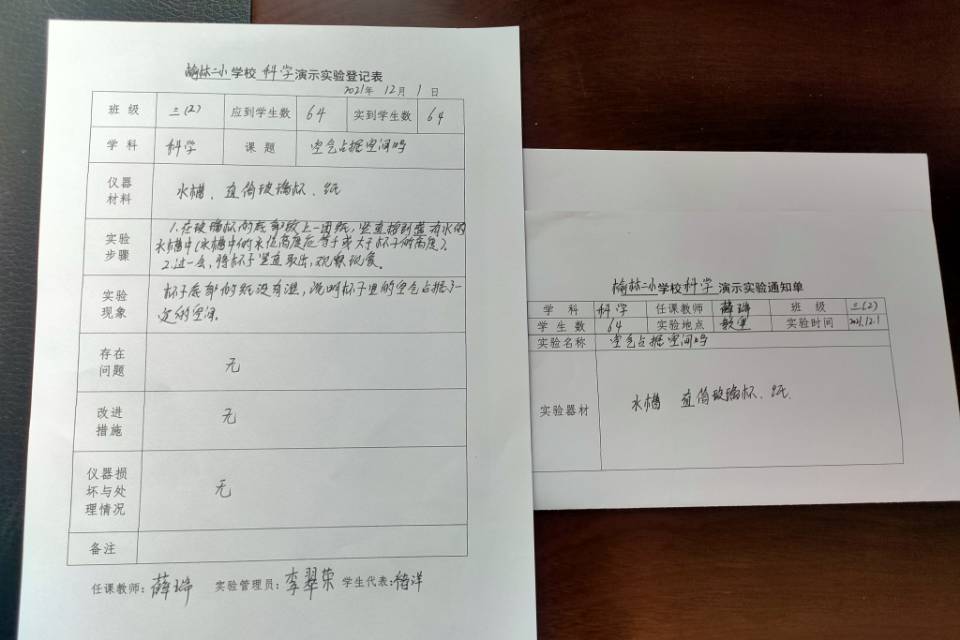 榆林二小学校科学演示实验登记表
2021年 12月 1 日
班 级 三(2) 应到学生数 64 实到学生数 64
学 科 科学 课 题 空气占据空间吗
仪器材料 水槽、直筒玻璃杯、纸
实验步骤 1.在玻璃杯的底部放上一团纸,竖直按到盛有水的
水槽中(水槽中的水位高度应等于或大于杯子的高度)。
2.过一会,将杯子竖直取出,观察现象。
实验现象 杯子底部的纸没有湿,说明杯子里的空气占据了一
定的空间。
存在问题 无
改进措施 无
仪器损坏与处理情况 无
备注
任课教师:薛瑞 实验管理员:李翠荣 学生代表:褚洋
榆林二小学校科学演示实验通知单
学 科 科学 任课教师 薛瑞 班 级 三(2)
学 生 数 64 实验地点 教室 实验时间 2021.12.1
实验名称 空气占据空间吗
实验器材 水槽 直筒玻璃杯、纸